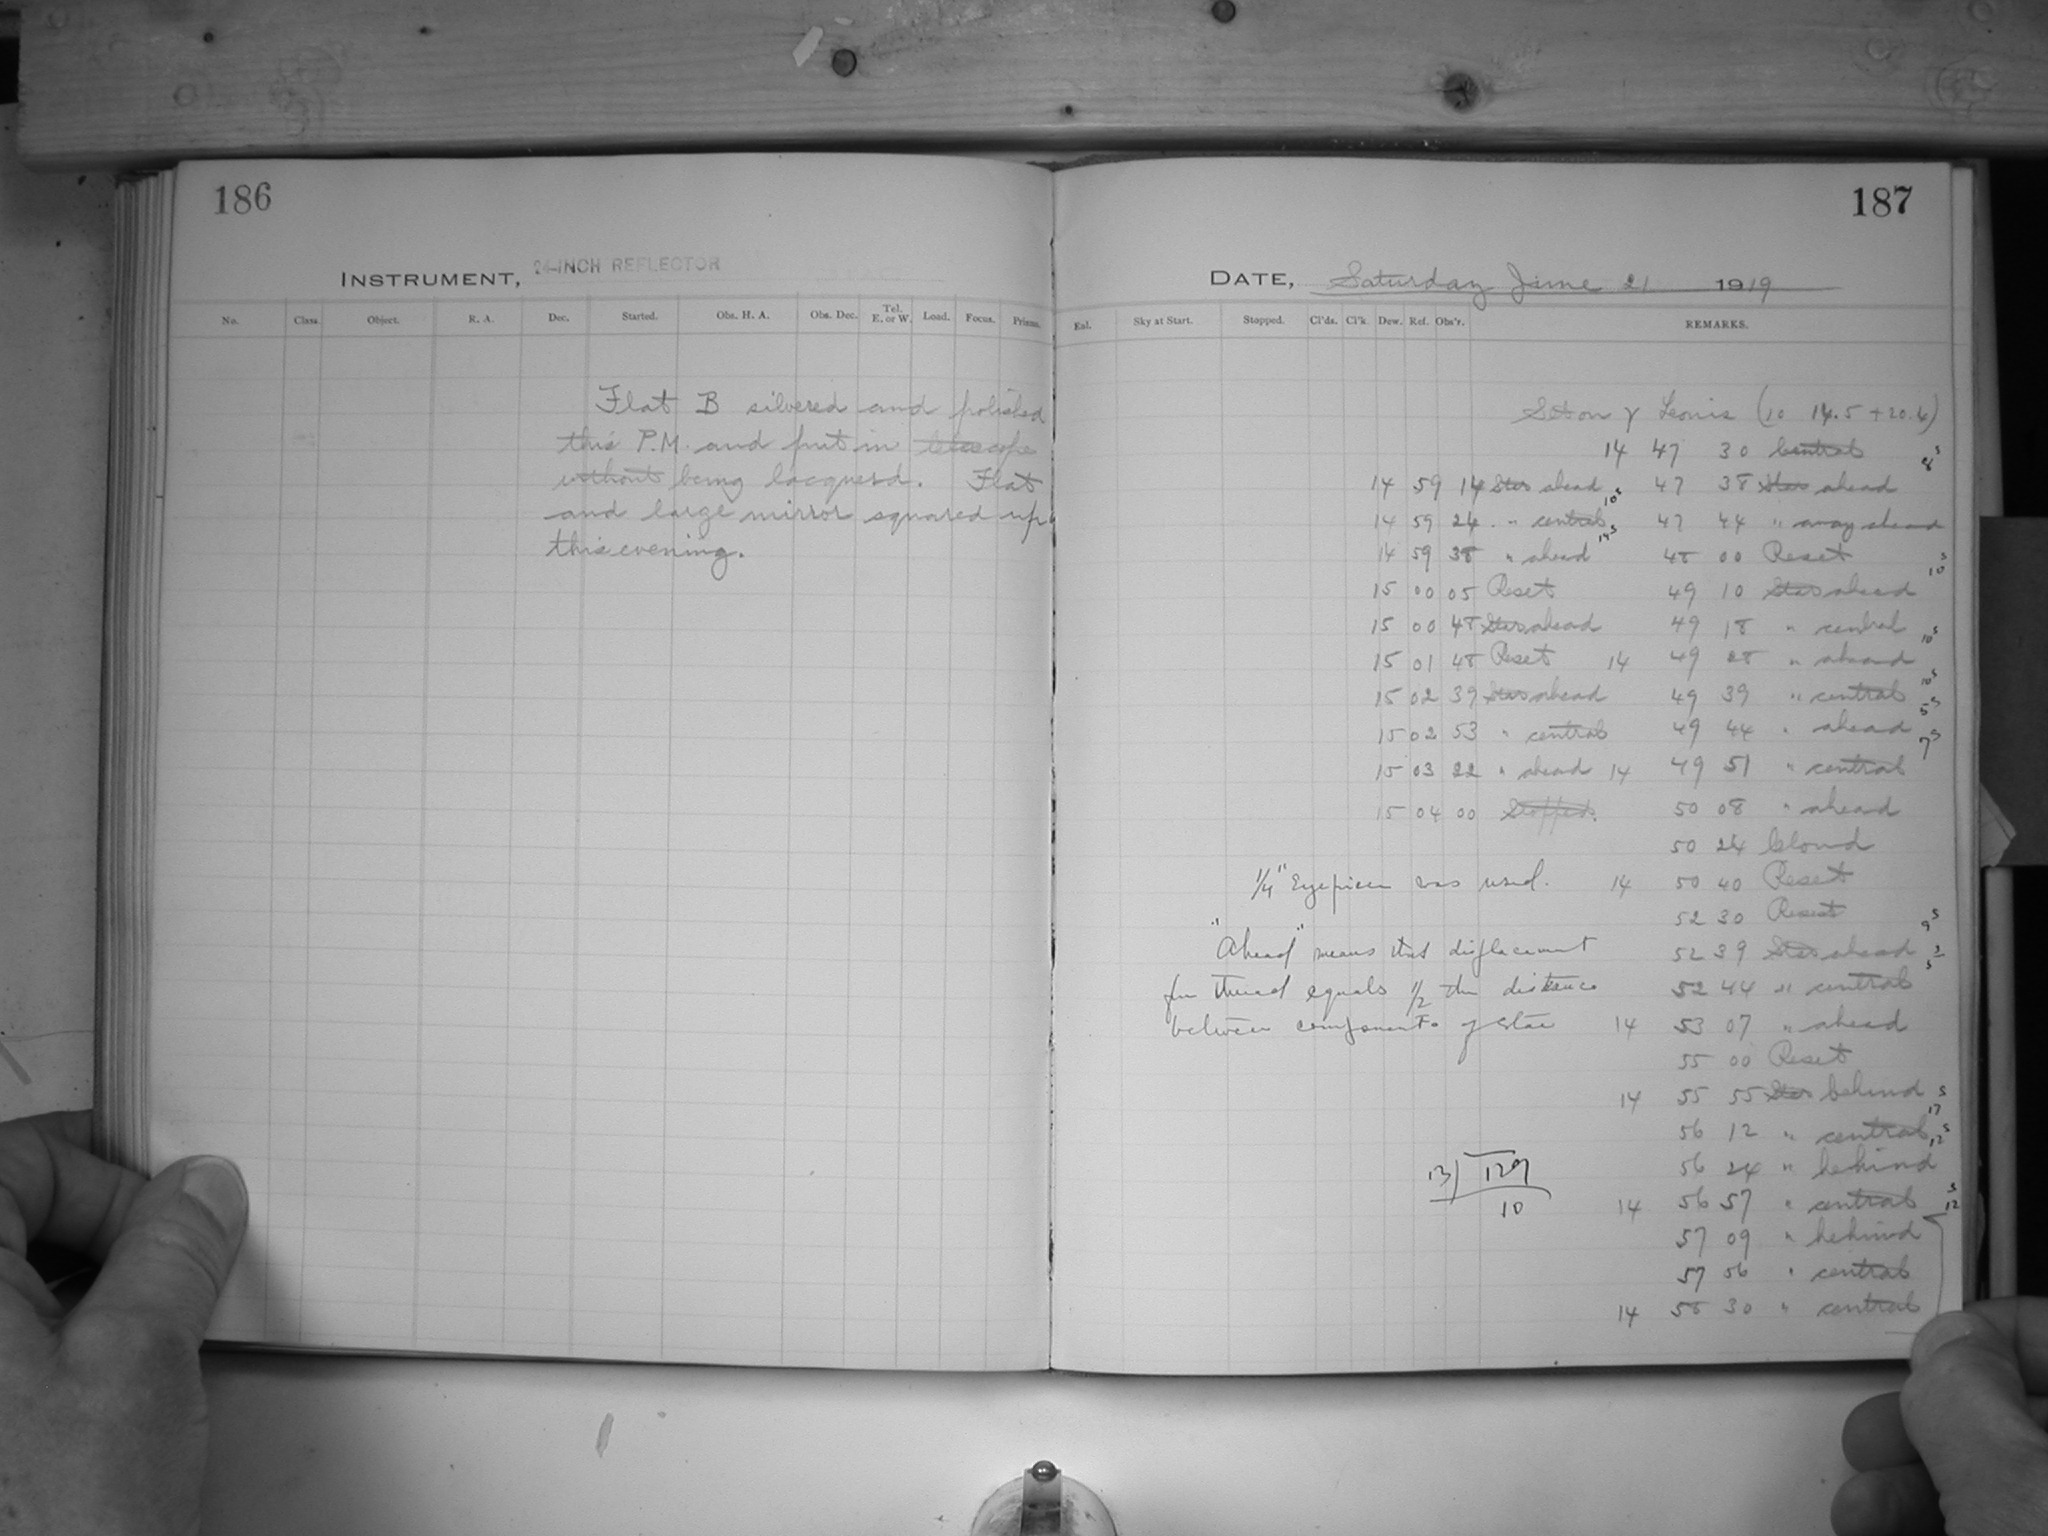 186
INSTRUMENT, 24-INCH REFLECTOR
No. Class. Object. R. A. Dec. Started. Obs. H. A. Obs. Dec. Tel. E. or W. Load. Focus. Prisms.
Flat B silvered and polished
this P.M. and put in telescope
without being lacquerd. Flat
and large mirror squared up
this evening.
187
DATE, Saturday June 21 1919
Eal. Sky at Start. Stopped. Cl'ds. Cl'k. Dew. Ref. Obs'r. REMARKS.
Set on γ Leonis (10 14.5 +20.4)
14 47 30 Central 8s
47 38 Star ahead
47 44 " away ahead
48 00 Reset 10s
49 10 Star ahead
49 18 " central 10s
14 49 28 " ahead 10s
49 39 " central 5s
49 44 " ahead 7s
14 49 51 " central
50 08 " ahead
50 24 Cloud
14 50 40 Reset
52 30 Reset 9s
52 39 Star ahead 5s
52 44 " central
14 53 07 " ahead
55 00 Reset
14 55 55 Star behind 17s
56 12 " central 12s
56 24 " behind
14 56 57 " central 12s
57 09 " behind
57 56 " central
14 58 30 " central
14 59 14 Star ahead 10s
14 59 24 " central 14s
14 59 38 " ahead
15 00 05 Reset
15 00 48 Star ahead
15 01 48 Reset
15 02 39 Star ahead
15 02 53 " central
15 03 22 " ahead
15 04 00 Stopped.
1/4" Eyepiece was used.
"Ahead" means that displacement
fm thread equals 1/2 the distance
between components of star
13) 129
10